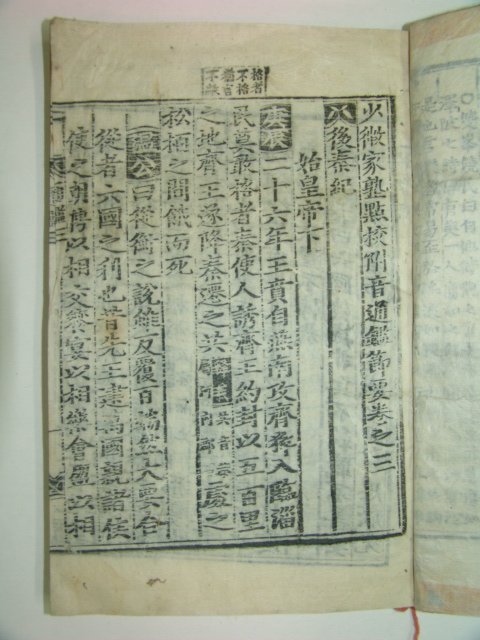 格者
不格
猶言
少微家塾點校附音通鑑節要卷之三
後秦紀
始皇帝下
庚辰二十六年王賁自燕南攻齊猝入臨淄
民莫敢格者秦使人誘齊王約封以五百里
之地齊王遂降秦遷之共處之
松栢之間餓而死
溫公曰從衡之說雖反覆百端然大要合
從者六國之利也昔先王建萬國親諸侯
使之朝聘以相交饗宴以相樂會盟以相